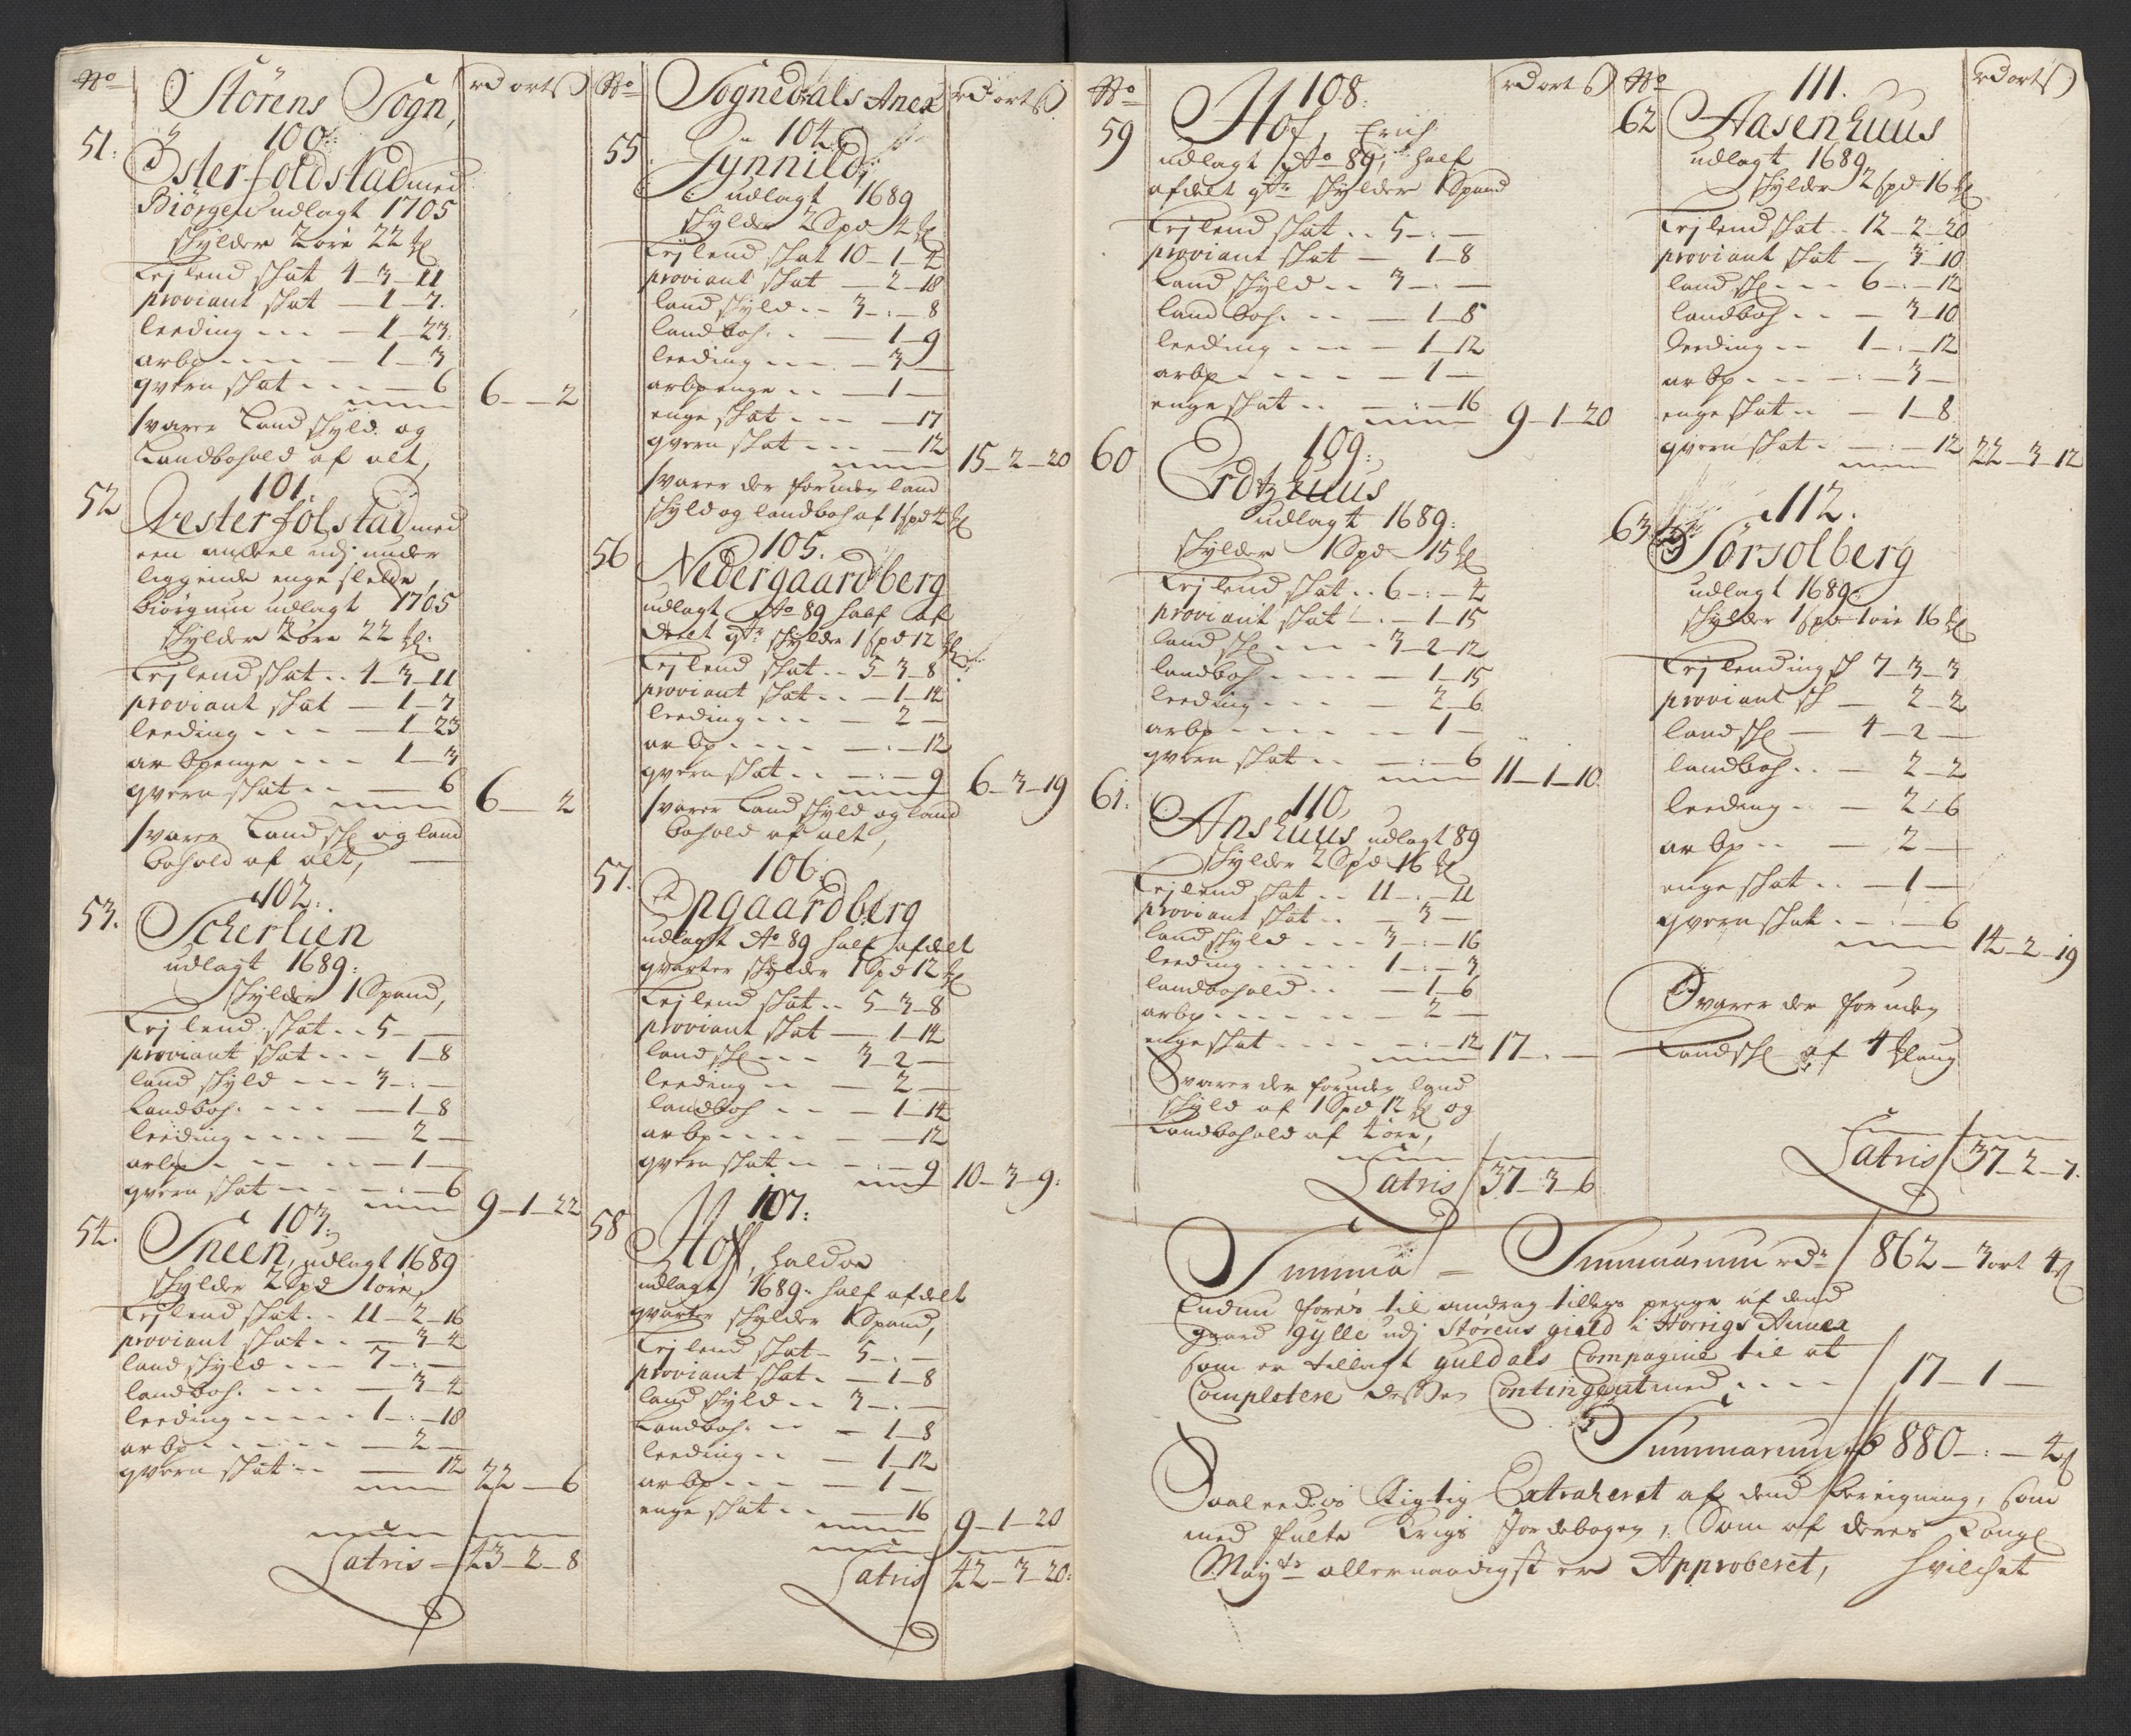 No
Störens Sogn,
rd ort ß
51:
100:
Österfoldstad med
Biörgen udlagt 1705
skylder 2 øre 22 ℔
Lejlend skat 4-3-11
proviant skat - 1-7.
leeding - - - 1-23.
arbp - - - - 1-3
qvern skat - - - 6
6 - - 2
svarer Land skyld og
Landbohold af alt,
52
101.
Vesterfolstad med
een andeel udj under
liggende enge slette,
Biörgum udlagt 1705
skylder 2 øre 22 ℔.
Lejlend skat .. 4-3-11
proviant skat - 1-7
leeding - - - 1-23
arbpenge - - - 1-3
qvern skat .. - 6
6 - - 2
svarer Landsk og land
bohold af alt,
53.
102.
Scherlien
udlagt 1689:
skylder 1 Spand,
Lejlend skat .. 5 - -
proviant skat - - - 1-8
land skyld - - - 3-:-
Landboh. - - - 1-8
leeding - - - - 2 -
arbp - - - - 1 -
qvern skat - - -:- 6
9-1-22
54.
103.
Sneen, udlagt 1689
skylder 2 Spd 1 øre,
Lejlend skat .. 11-2-16
proviant skat .. - 3-4
land skyld - - - 7-:-
landboh. - - - - 3-4
leeding - - - - 1-:-18
arbp - - - - - 2 -
qvern skat - - - 12
22 - - 6
Latris - 43-2-8
No
Sognedals Anex
rd ort ß
55.
104.
Jÿnnild,
udlagt 1689
skylder 2 Spd 4 ℔
Lejlend skat 10-1-4
proviant skat - 2-18
land skyld .. 3-:-8
landboh. .. - 1-9
leeding - - - - 3 -
arbpenge .. - 1 -
enge skat - - - 17
qvern skat - - - 12
15-2-20
svarer der foruden land
skyld og landboh af 1 spd 4 ℔
56
105.
Nedergaardberg
udlagt Ao 89 half af
deelt qtr skylder 1 spd 12 ℔
Lejlend skat .. 5-3-8
proviant skat .. - 1-14
leeding - - - - 2 -
arbp - - - - -:- 12
qvern skat .. -:- 9
6-3-19
svarer Land skyld og land
bohold af alt,
57.
106.
Opgaardberg
udlagt Ao 89 half afdelt
qvarter skylder 1 Spd 12 ℔
Lejlend skat .. 5-3-8
proviant skat - 1-14
landsk - - - 3-2 -
leeding .. - 2 -
landboh - - - 1-14
arbp - - - - - 12
qvern skat .. -:- 9
10-3-9:
58
107:
Hoff, Haldoe
udlagt 1689. half afdelt
qvarter skylder 1 Spand,
Lejlend skat - 5-:-
proviant skat. - 1-8
land skyld .. 3-:-
Landboh. .. - 1-8
leeding .. - 1-12
arbp - - - - 1 -
enge skat .. - 16
9-1-20
Latris 42-3-20:
No
rd ort ß
59
108:
Hof, Erich
udlagt Ao 89, half
afdelt qtr skylder 1 Spand
Lejlend skat .. 5-:-
proviant skat - 1-8
Land skyld .. 3-:-
landboh. .. - 1-8
leeding - - - 1-12
arbp - - - - - 1 -
enge skat .. -:- 16
9-1-20
60
109:
Erdtzhuus
udlagt 1689:
skylder 1 Spd 15 ℔
Lejlend skat .. 6-:-4
proviant skat - . - 1-15
landsk - - - 3-2-12
landboh - - - - 1-15
leeding - - - - 2-6
arbp - - - - - 1 -
qvern skat .. -:- 6
11-1-10.
61.
110,
Anshuus, udlagt 89
skylder 2 Spd 16 ℔
Lejlend skat .. 11-:-11
proviant skat .. - 3 -
land skyld - - - 3-:-16
leeding - - - - 1-:-3
landbohold .. - 1-6
arbp - - - - - 2 -
enge skat - - - -:- 12
17-.-
Svarer der foruden land
skyld af 1 Spd 12 ℔ og
Landbohold af 4 øre,
Latris 37-3-6
No
rd ort ß
62
111.
Aasenhuus
udlagt 1689
skylder 2 spd 16 ℔
Lejlend skat .. 12-2-20
proviant skat - 3-10
landsk - - - 6-:-12
landboh .. - 3-10
Leeding .. 1-:-12
arbp - - - -:- 3 -
enge skat .. - 1-8
qvern skat . -:- 12
22-3-12
63
112.
Sörsolberg
udlagt 1689:
skylder 1 spd 1 øre 16 ℔
Lejlendingsk 7-3-3
proviant sk - 2-2
landsk - 4-2 -
landboh .. - 2-2
leeding .. - 2-6
arbp .. - 2 -
enge skat .. - 1 -
qvern skat . -:- 6
14-2-19
Svarer der foruden
Landsk af 4 ℔laug
Latris 37-2-7.
Summa - Summarum rdr 862-3 ort 4 ß
Endnu føres til andrag tillegs penge af dend
gaard Gylle udj Størens gield i Horrigs Annex
som er tillagt guldals Compagnie til at
Completere desses Contingent med - - -
17-1-
Summarum 880-:-4 ß
Saaledes Rigtig Extraheret af dend Bereigning, som
med fulte Krigs Jordebogen, som af deres Kongl
Mayts allernaadigst er Approberet, hvilchet